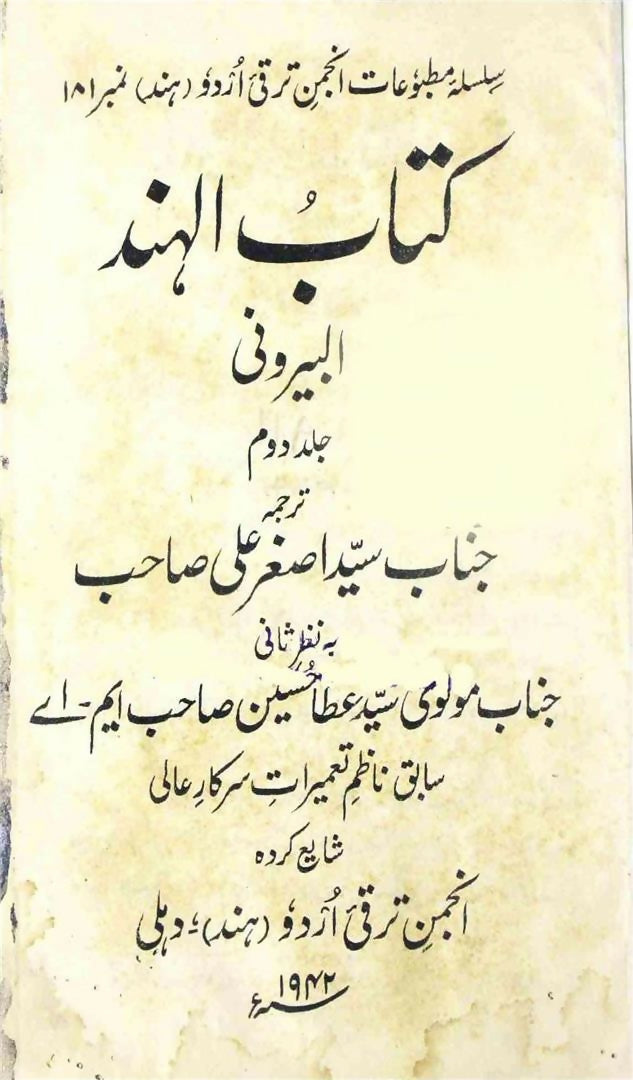 سلسلۂ مطبوعات انجمنِ ترقیِٔ اُردوٗ (ہند) نمبر ۱۸۱
کتابُ الہند
البیرونی
جلد دوم
ترجمہ
جناب سیّد اصغر علی صاحب
بہ نظرِ ثانی
جناب مولوی سیّد عطا حُسین صاحب ایم۔اے
سابق ناظمِ تعمیراتِ سرکارِ عالی
شایع کردہ
انجمنِ ترقیِٔ اُردوٗ (ہند)، دہلی
۱۹۴۲ء